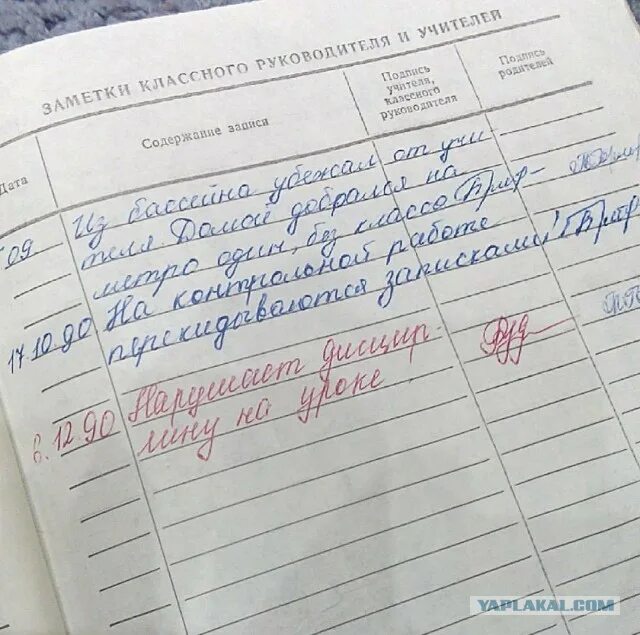 ЗАМЕТКИ КЛАССНОГО РУКОВОДИТЕЛЯ И УЧИТЕЛЕЙ
Дата
Содержание записи
Подпись
учителя,
классного
руководителя
Подпись
родителей
09
Из бассейна убежал от учи
теля. Домой добрался на
метро один, без класса
17.10.90 На контрольной работе
перекидываются записками!
6.12.90 Нарушает дисцип-
лину на уроке
YAPLAKAL.COM